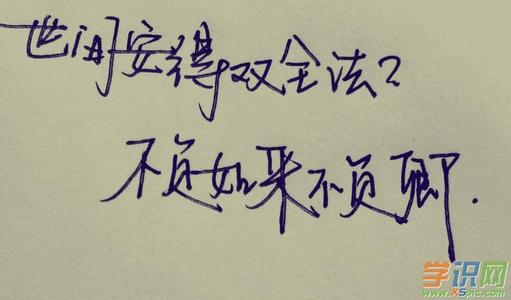 世间安得双全法？
不负如来不负卿.
学识网
www.XSpic.com